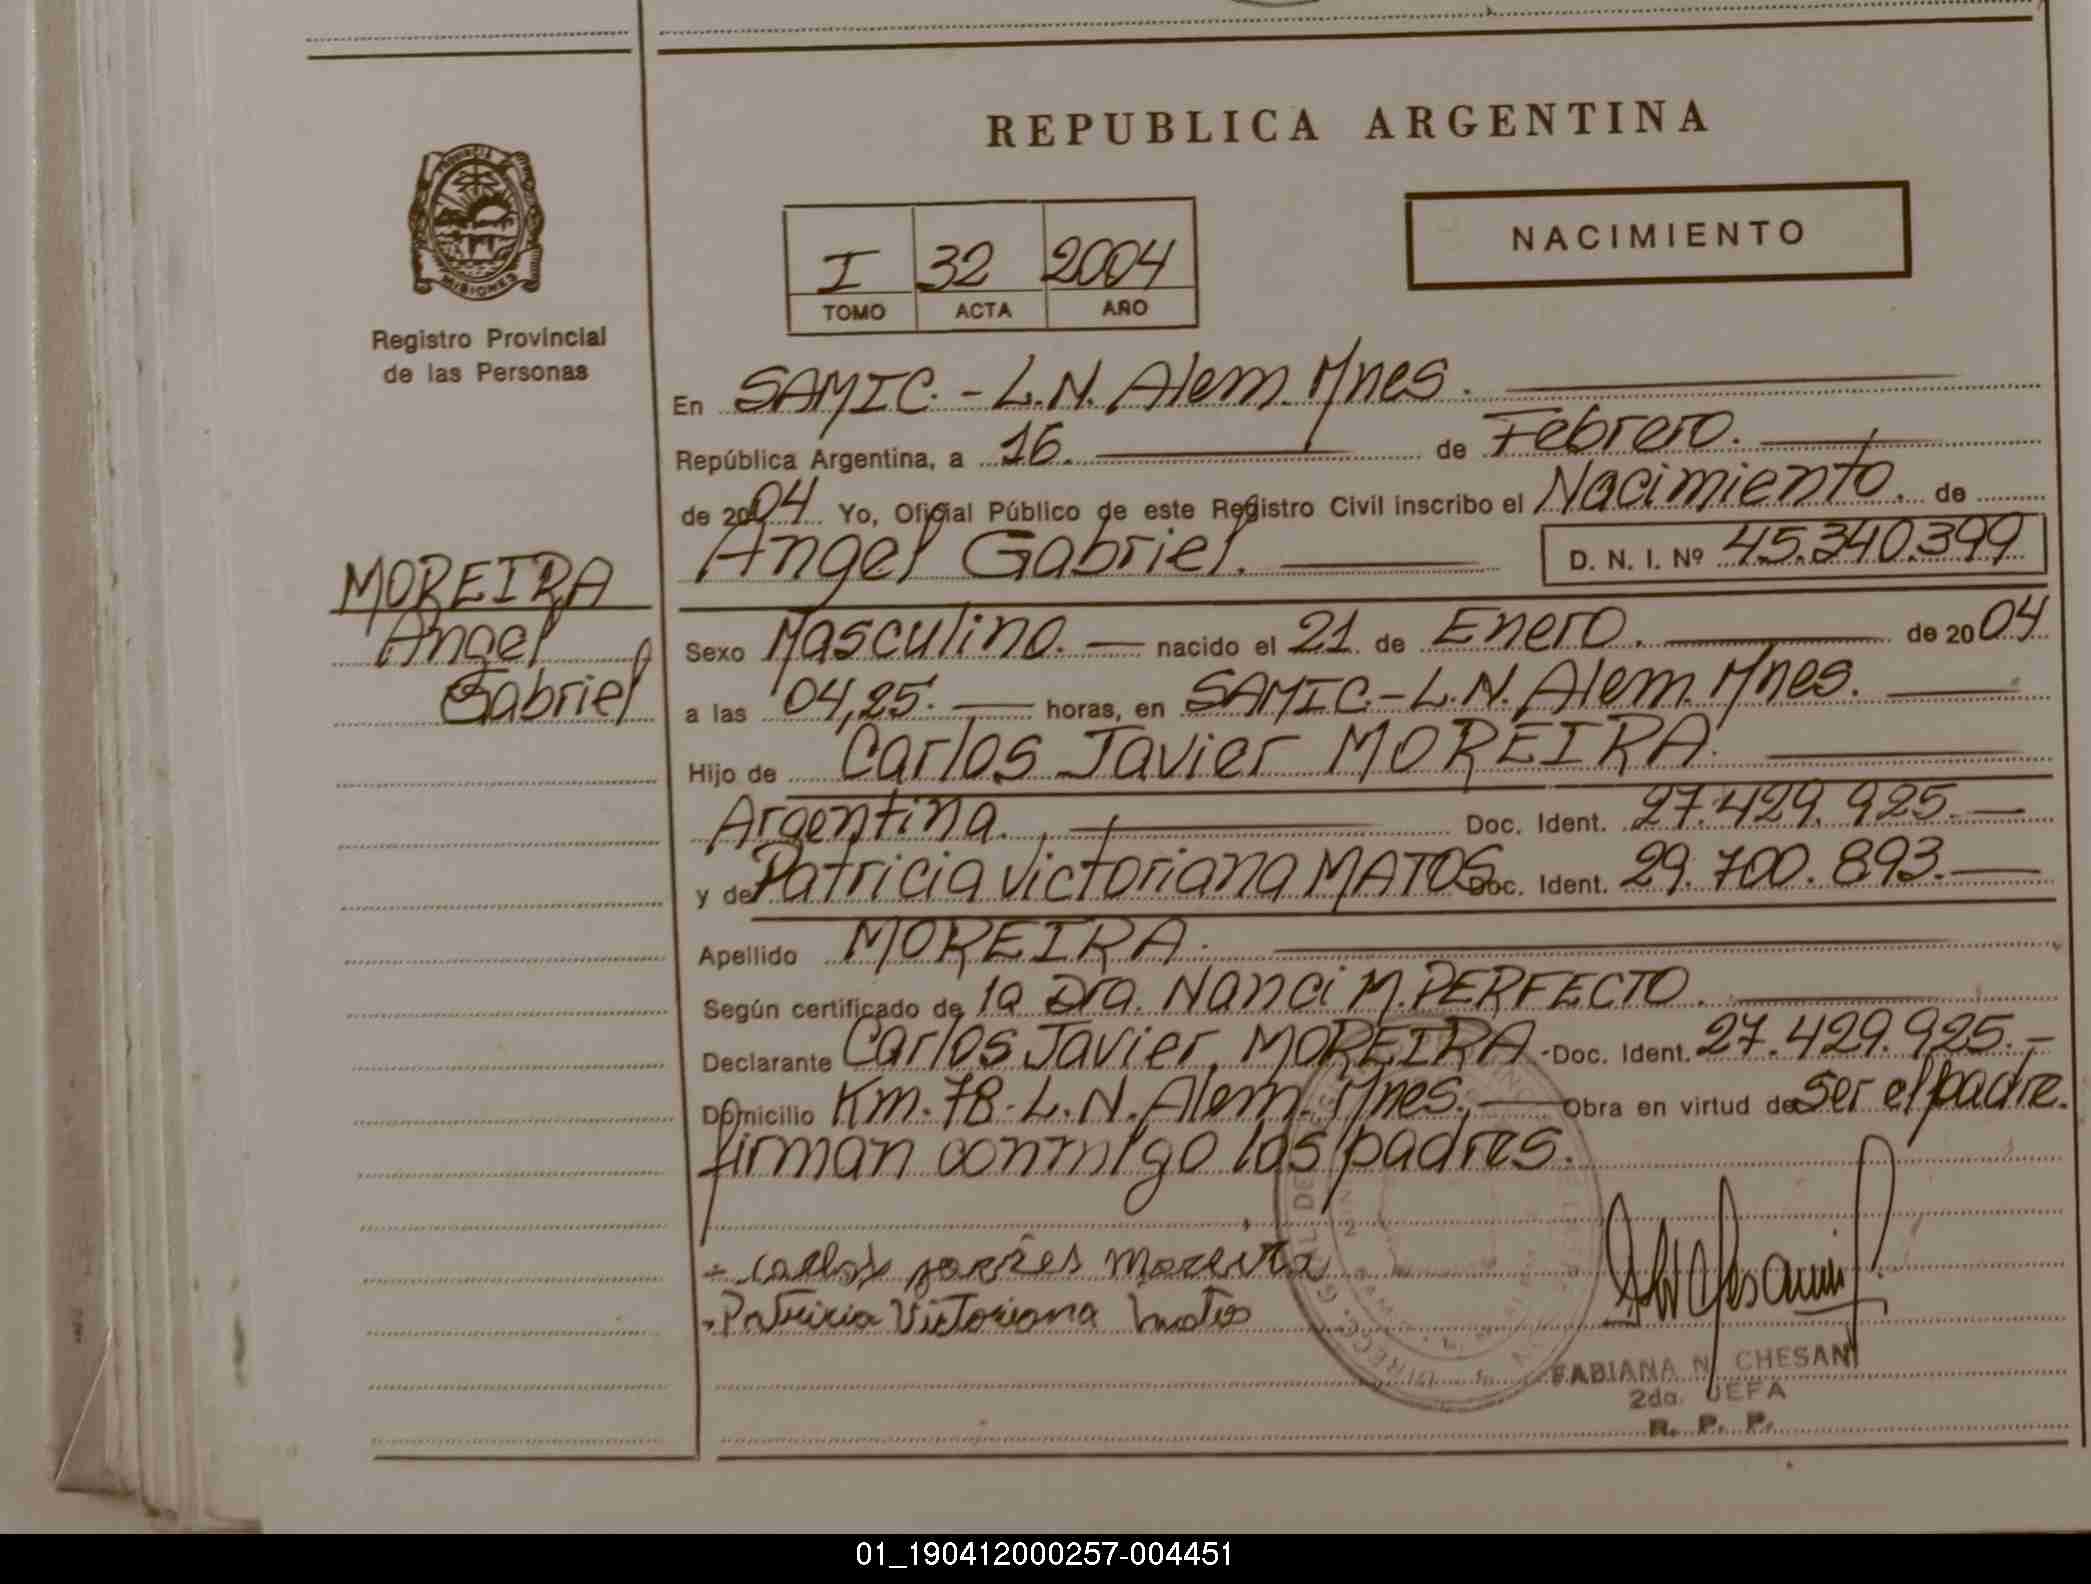 REPUBLICA ARGENTINA
PROVINCIA
MISIONES
Registro Provincial
de las Personas
I 32 2004
TOMO ACTA AÑO
NACIMIENTO
En SAMIC.-L.N. Alem. Mnes.
República Argentina, a 16. de Febrero.
de 2004 Yo, Oficial Público de este Registro Civil inscribo el Nacimiento. de
Angel Gabriel. D. N. I. Nº 45.340.399
MOREIRA
Angel
Gabriel
Sexo Masculino. nacido el 21. de Enero. de 2004
a las 04,25. horas, en SAMIC.-L.N. Alem. Mnes.
Hijo de Carlos Javier MOREIRA.
Argentina. Doc. Ident. 27.429.925.
y de Patricia Victoriana MATOS Doc. Ident. 29.700.893.
Apellido MOREIRA.
Según certificado de la Dra. Nanci M. PERFECTO.
Declarante Carlos Javier MOREIRA.- Doc. Ident. 27.429.925.-
Domicilio Km. 78-L.N. Alem. Mnes. Obra en virtud de ser el padre.
firman conmigo los padres.
Patricia Victoriana Matos
FABIANA N. CHESANI
2da. JEFA
R. P. P.
01_190412000257-004451